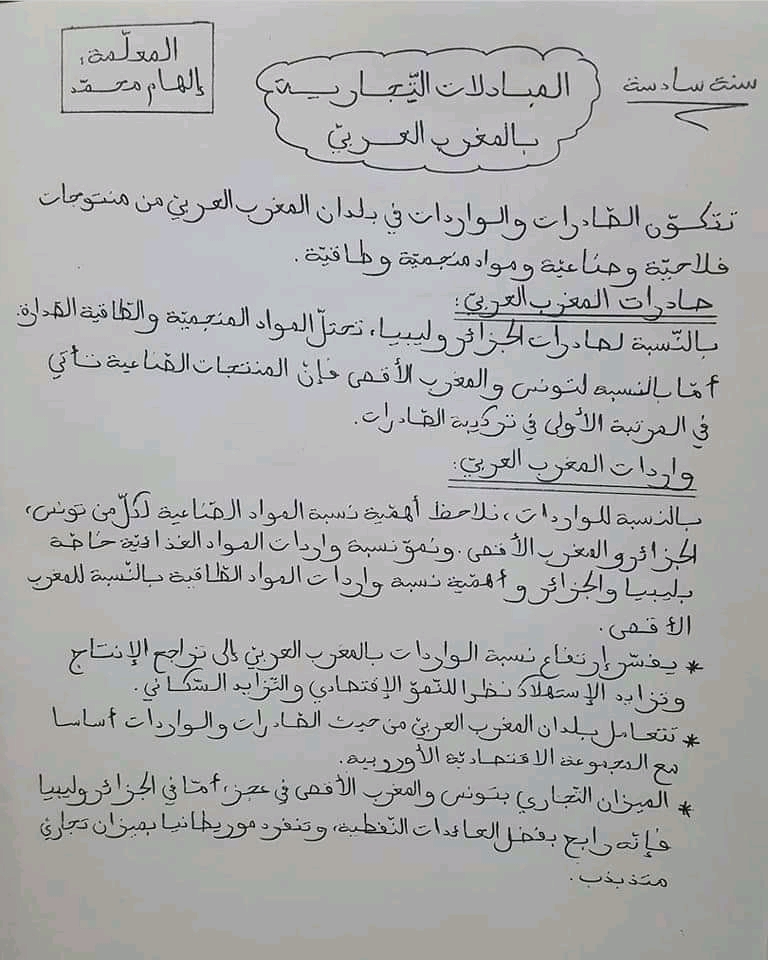 سنة سادسة
المبادلات التّجارية
بالمغرب العربيّ
المعلّمة:
إلهام محمّد
تتكوّن الصّادرات والواردات في بلدان المغرب العربيّ من منتوجات
فلاحيّة وصناعيّة ومواد منجميّة وطاقيّة.
صادرات المغرب العربيّ:
بالنّسبة لصادرات الجزائر وليبيا، تحتلّ المواد المنجميّة والطّاقية الصّدارة.
أمّا بالنسبة لتونس والمغرب الأقصى فإنّ المنتجات الصّناعية تأتي
في المرتبة الأولى في تركيبة الصّادرات.
واردات المغرب العربيّ:
بالنسبة للواردات، نلاحظ أهمّية نسبة المواد الصّناعية لكلّ من تونس،
الجزائر والمغرب الأقصى. ونموّ نسبة واردات المواد الغذائيّة خاصّة
بليبيا والجزائر وأهمّية نسبة واردات المواد الطّاقية بالنّسبة للمغرب
الأقصى.
* يفسّر إرتفاع نسبة الواردات بالمغرب العربيّ إلى تراجع الإنتاج
وتزايد الإستهلاك نظرا للنّموّ الإقتصادي والتّزايد السّكاني.
* تتعامل بلدان المغرب العربيّ من حيث الصّادرات والواردات أساسا
مع المجموعة الاقتصاديّة الأوروبية.
* الميزان التّجاري بتونس والمغرب الأقصى في عجز، أمّا في الجزائر وليبيا
فإنّه رابح بفضل العائدات النّفطية، وتنفرد موريطانيا بميزان تجاريّ
متذبذب.